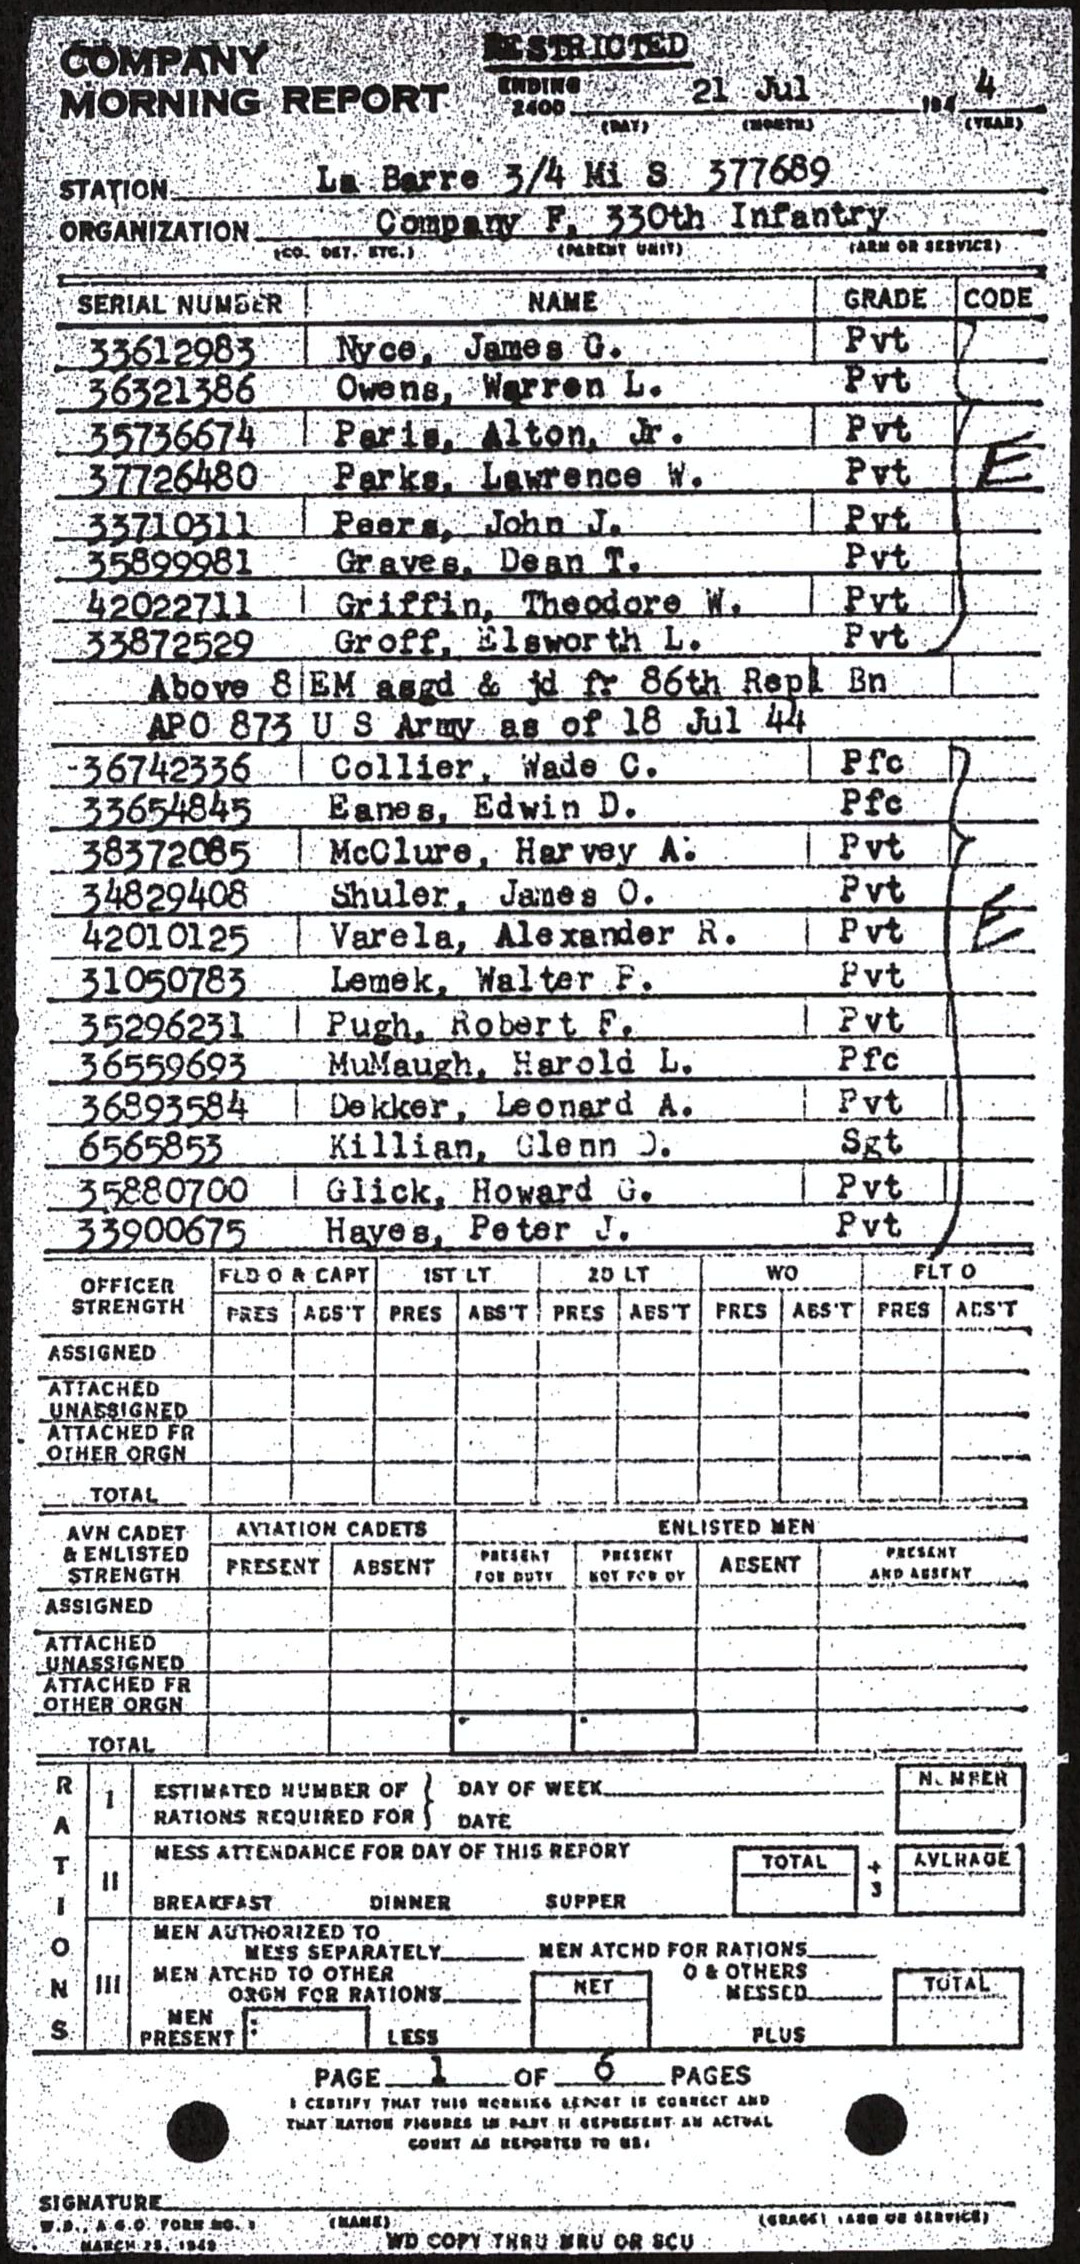 COMPANY
MORNING REPORT
RESTRICTED
ENDING
2400 21 Jul 194 4
(DAY) (MONTH) (YEAR)
STATION La Barre 3/4 Mi S 377689
ORGANIZATION Company F, 330th Infantry
(CO. DET. ETC.) (PARENT UNIT) (ARM OR SERVICE)
SERIAL NUMBER NAME GRADE CODE
33612983 Nyce, James G. Pvt
36321386 Owens, Warren L. Pvt
35736674 Paris, Alton, Jr. Pvt
37726480 Parks, Lawrence W. Pvt E
33710311 Peers, John J. Pvt
35899981 Graves, Dean T. Pvt
42022711 Griffin, Theodore W. Pvt
33872529 Groff, Elsworth L. Pvt
Above 8 EM asgd & jd fr 86th Repl Bn
APO 873 U S Army as of 18 Jul 44
36742336 Collier, Wade C. Pfc
33654845 Eanes, Edwin D. Pfc
38372085 McClure, Harvey A. Pvt
34829408 Shuler, James O. Pvt
42010125 Varela, Alexander R. Pvt E
31050783 Lemek, Walter P. Pvt
35296231 Pugh, Robert F. Pvt
36559693 MuMaugh, Harold L. Pfc
36893584 Dekker, Leonard A. Pvt
6565853 Killian, Glenn Sgt
35880700 Glick, Howard G. Pvt
33900675 Hayes, Peter J. Pvt
OFFICER
STRENGTH
FLD O & CAPT 1ST LT 2D LT WO FLT O
PRES ABS'T PRES ABS'T PRES ABS'T PRES ABS'T PRES ABS'T
ASSIGNED
ATTACHED
UNASSIGNED
ATTACHED FR
OTHER ORGN
TOTAL
AVN CADET
& ENLISTED
STRENGTH
AVIATION CADETS ENLISTED MEN
PRESENT ABSENT PRESENT
FOR DUTY PRESENT
NOT FOR DY ABSENT PRESENT
AND ABSENT
ASSIGNED
ATTACHED
UNASSIGNED
ATTACHED FR
OTHER ORGN
TOTAL
RATIONS
I ESTIMATED NUMBER OF DAY OF WEEK NUMBER
RATIONS REQUIRED FOR DATE
II MESS ATTENDANCE FOR DAY OF THIS REPORT TOTAL ÷ 3 AVERAGE
BREAKFAST DINNER SUPPER
III MEN AUTHORIZED TO
MESS SEPARATELY MEN ATCHD FOR RATIONS
MEN ATCHD TO OTHER
ORGN FOR RATIONS NET O & OTHERS
MESSED TOTAL
MEN
PRESENT LESS PLUS
PAGE 1 OF 6 PAGES
I CERTIFY THAT THIS MORNING REPORT IS CORRECT AND
THAT RATION FIGURES IN PART II REPRESENT AN ACTUAL
COUNT AS REPORTED TO ME.
SIGNATURE
(NAME) (GRADE) (ARM OR SERVICE)
W.D., A.G.O. FORM NO. 1
MARCH 25, 1943
WD COPY THRU MRU OR SCU